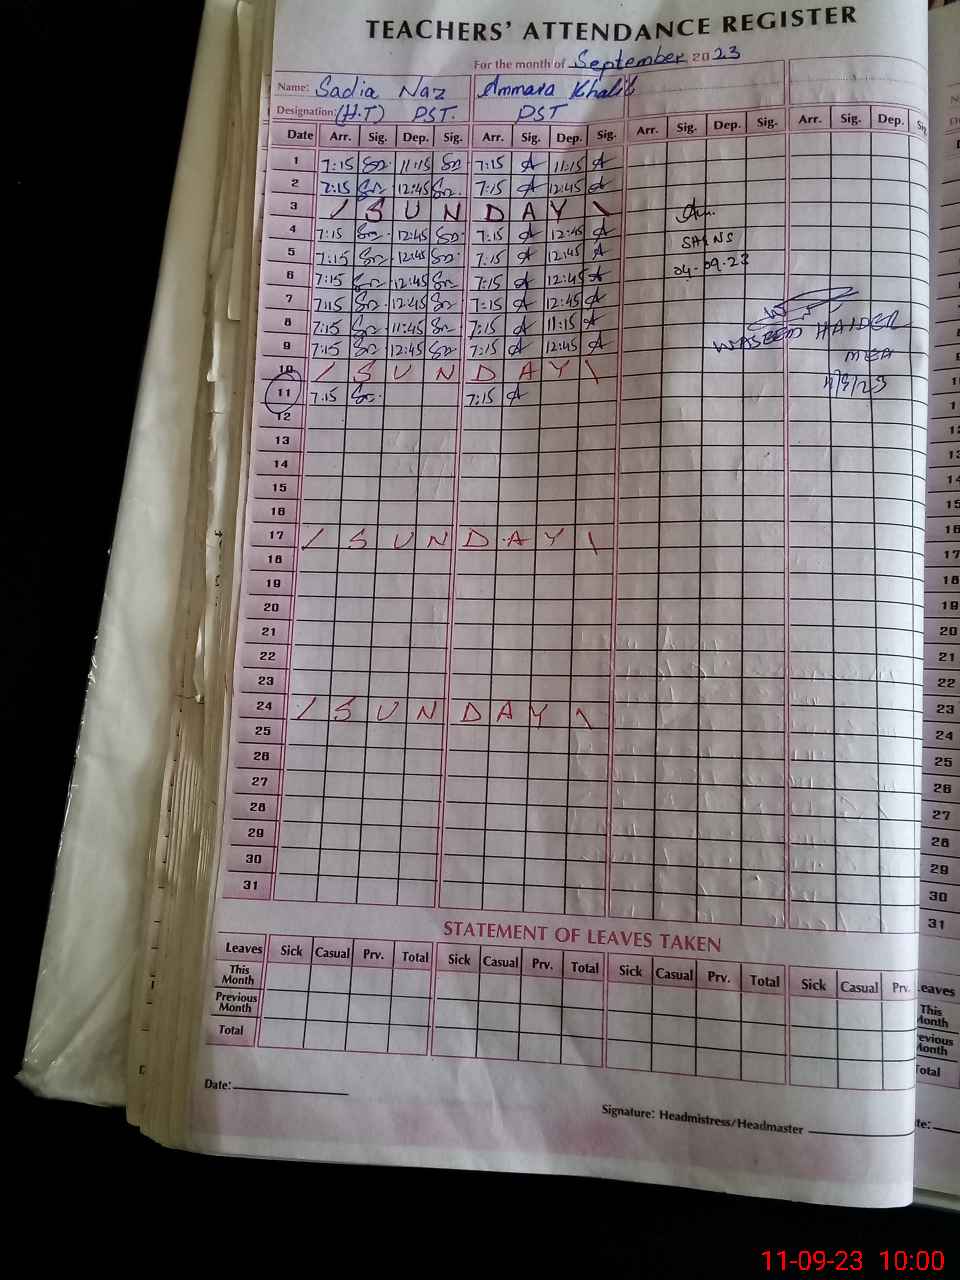 TEACHERS' ATTENDANCE REGISTER
For the month of September 2023
Name: Sadia Naz Ammara Khalil
Designation: (H.T) PST. PST
Date Arr. Sig. Dep. Sig. Arr. Sig. Dep. Sig. Arr. Sig. Dep. Sig. Arr. Sig. Dep.
1 7:15 11:15 7:15 11:15
2 7:15 12:45 7:15 12:45
3 / S U N D A Y \
4 7:15 12:45 7:15 12:45
5 7:15 12:45 7:15 12:45
6 7:15 12:45 7:15 12:45
7 7:15 12:45 7:15 12:45
8 7:15 11:45 7:15 11:15
9 7:15 12:45 7:15 12:45
10 / S U N D A Y \
11 7:15 7:15
12
13
14
15
16
17 / S U N D A Y \
18
19
20
21
22
23
24 / S U N D A Y \
25
26
27
28
29
30
31
04-09-23
WASEEM HAIDER
MEA
STATEMENT OF LEAVES TAKEN
Leaves Sick Casual Prv. Total Sick Casual Prv. Total Sick Casual Prv. Total Sick Casual Prv.
This Month
Previous Month
Total
Date:
Signature: Headmistress/Headmaster
11-09-23 10:00